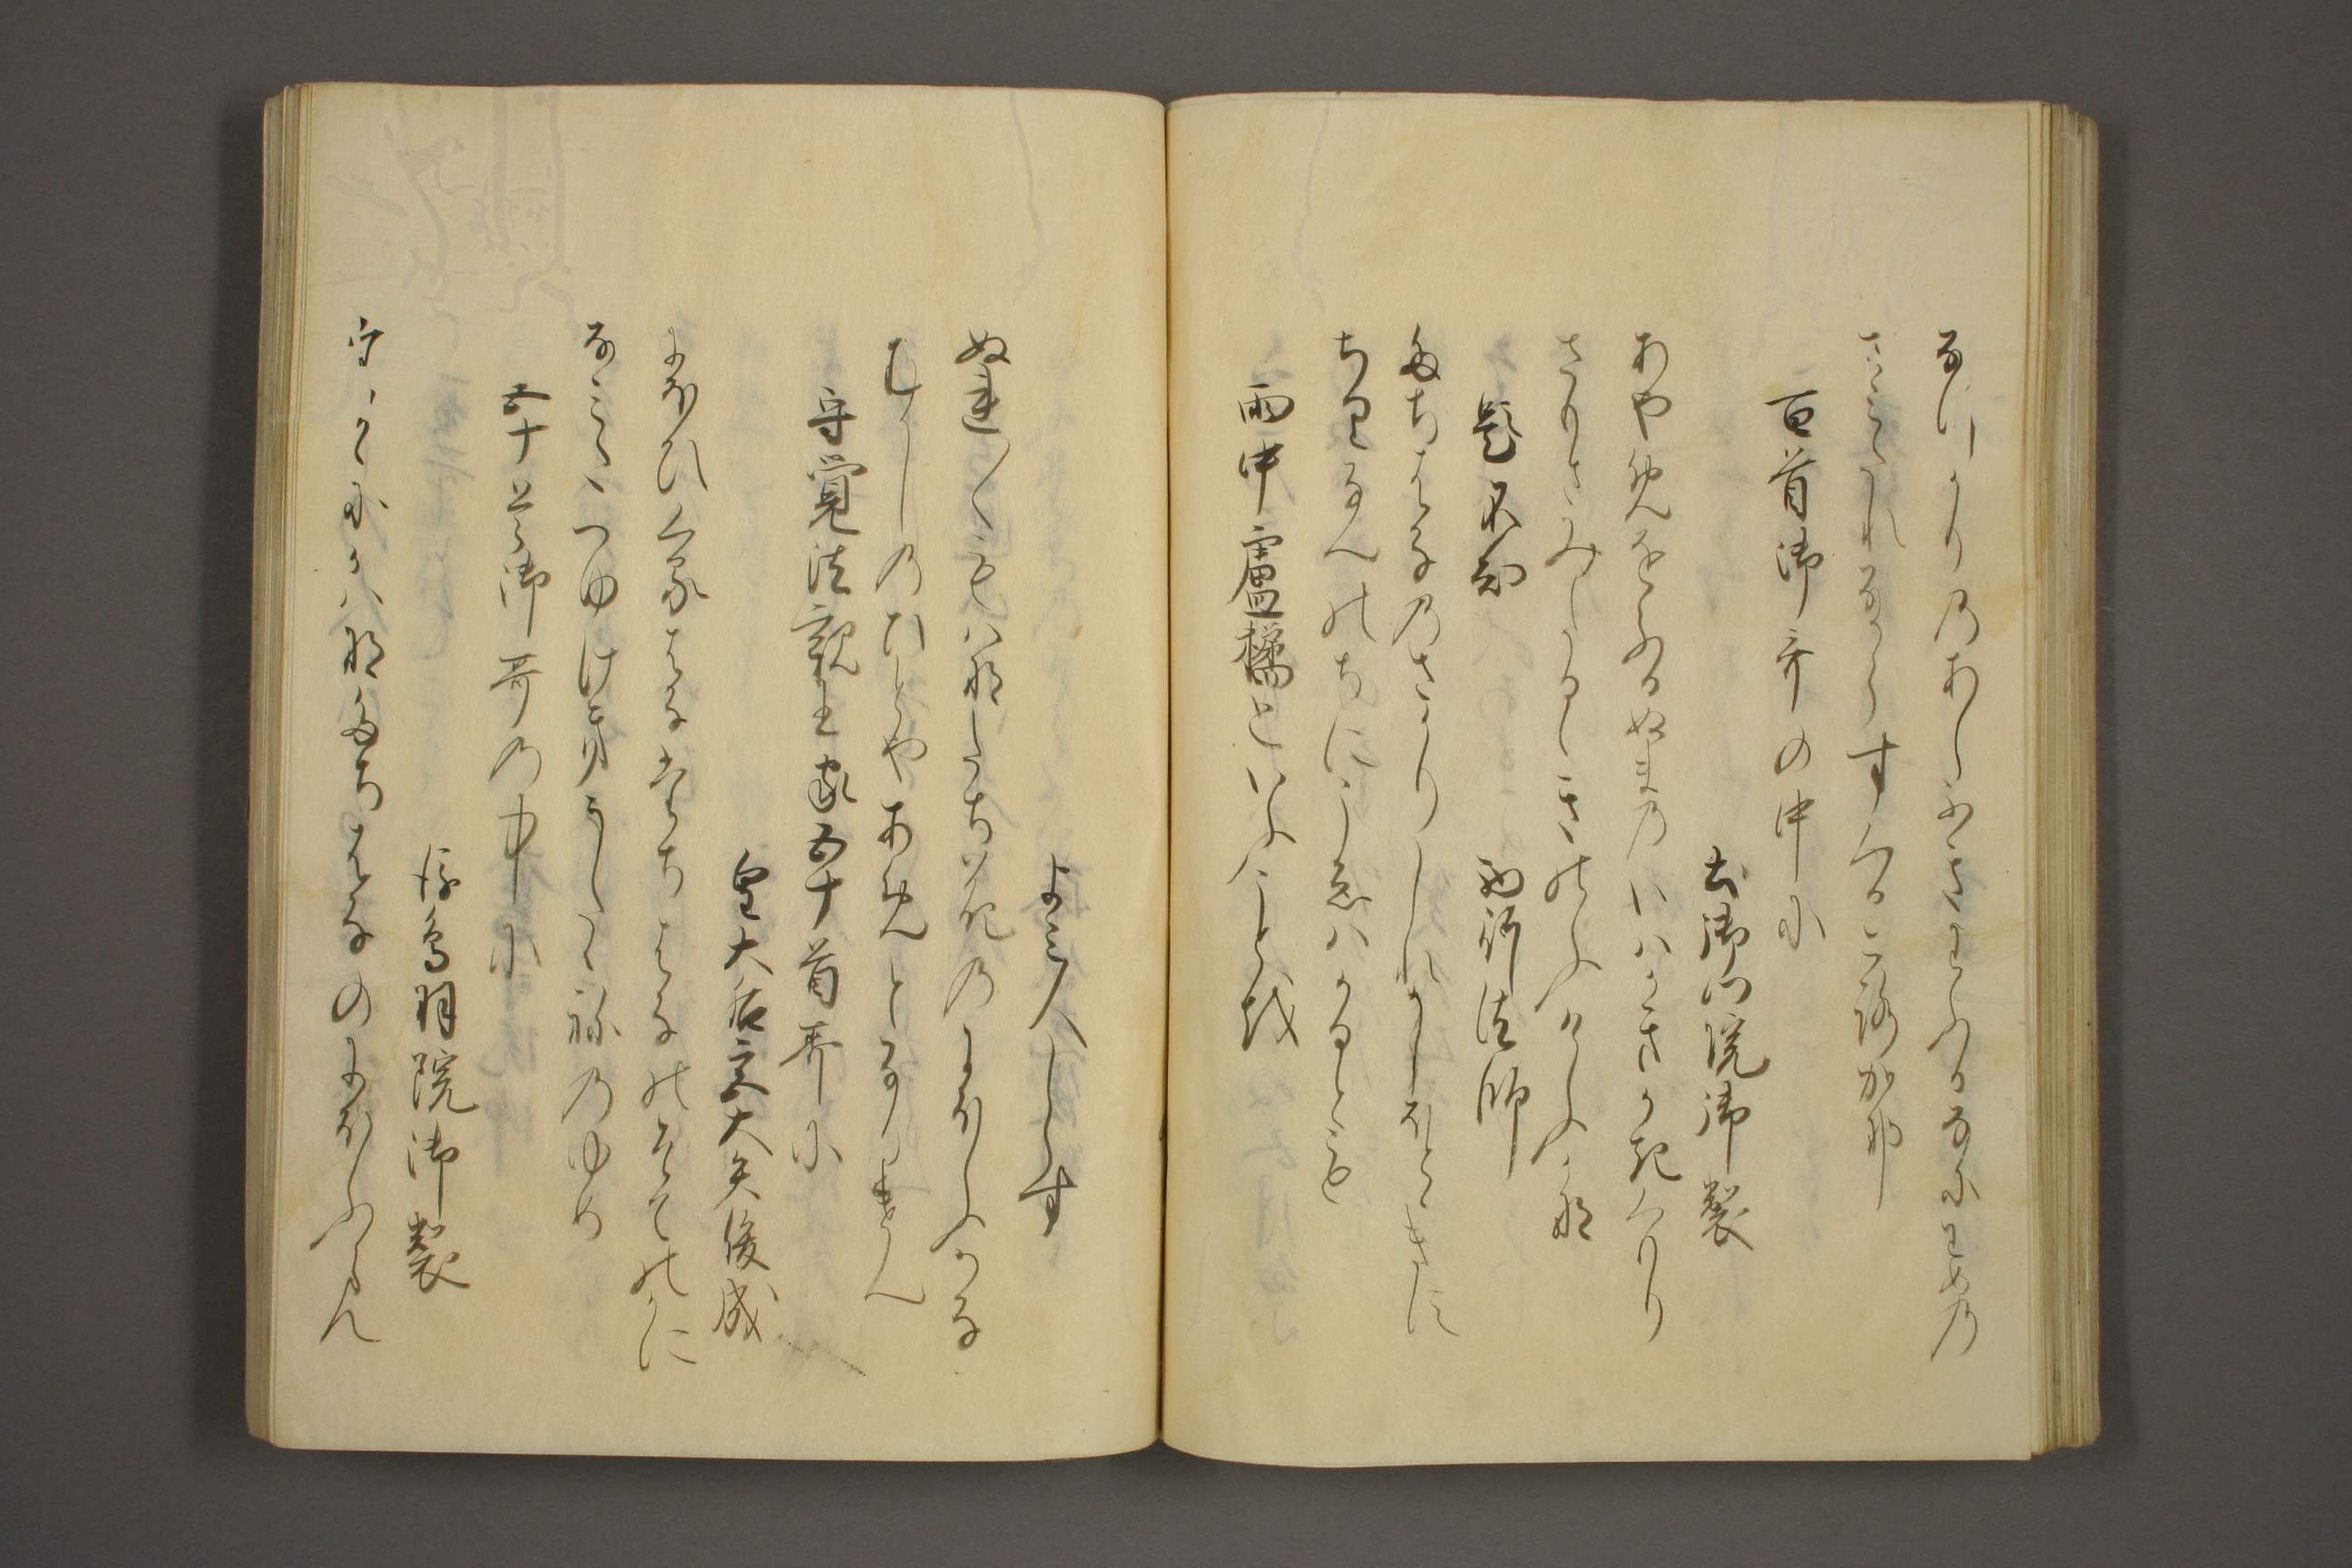 なつかりのあし なにわめの
さみたれならすくるころかな
百首御哥の中に
土御門院御製
あやめをふるぬまのいはかきかきくもり
さもさみたるゝきのふけふかな
題不知 西行法師
たちはなのさかりしれかしほとゝきす
ちりなんのちにこゑはかるとも
雨中盧橘といふことを
よみ人しらす
ぬれ〱もはなたちはなのにほふかな
むかしのひとやあめとなりけん
守覚法親王家五十首哥に
皇太后宮大夫俊成
にほひくるはなたちはなのそてのかに
なみたつゆけきうたゝねのゆめ
五十首御哥の中に
後鳥羽院御製
はなたちはなのにほふらん